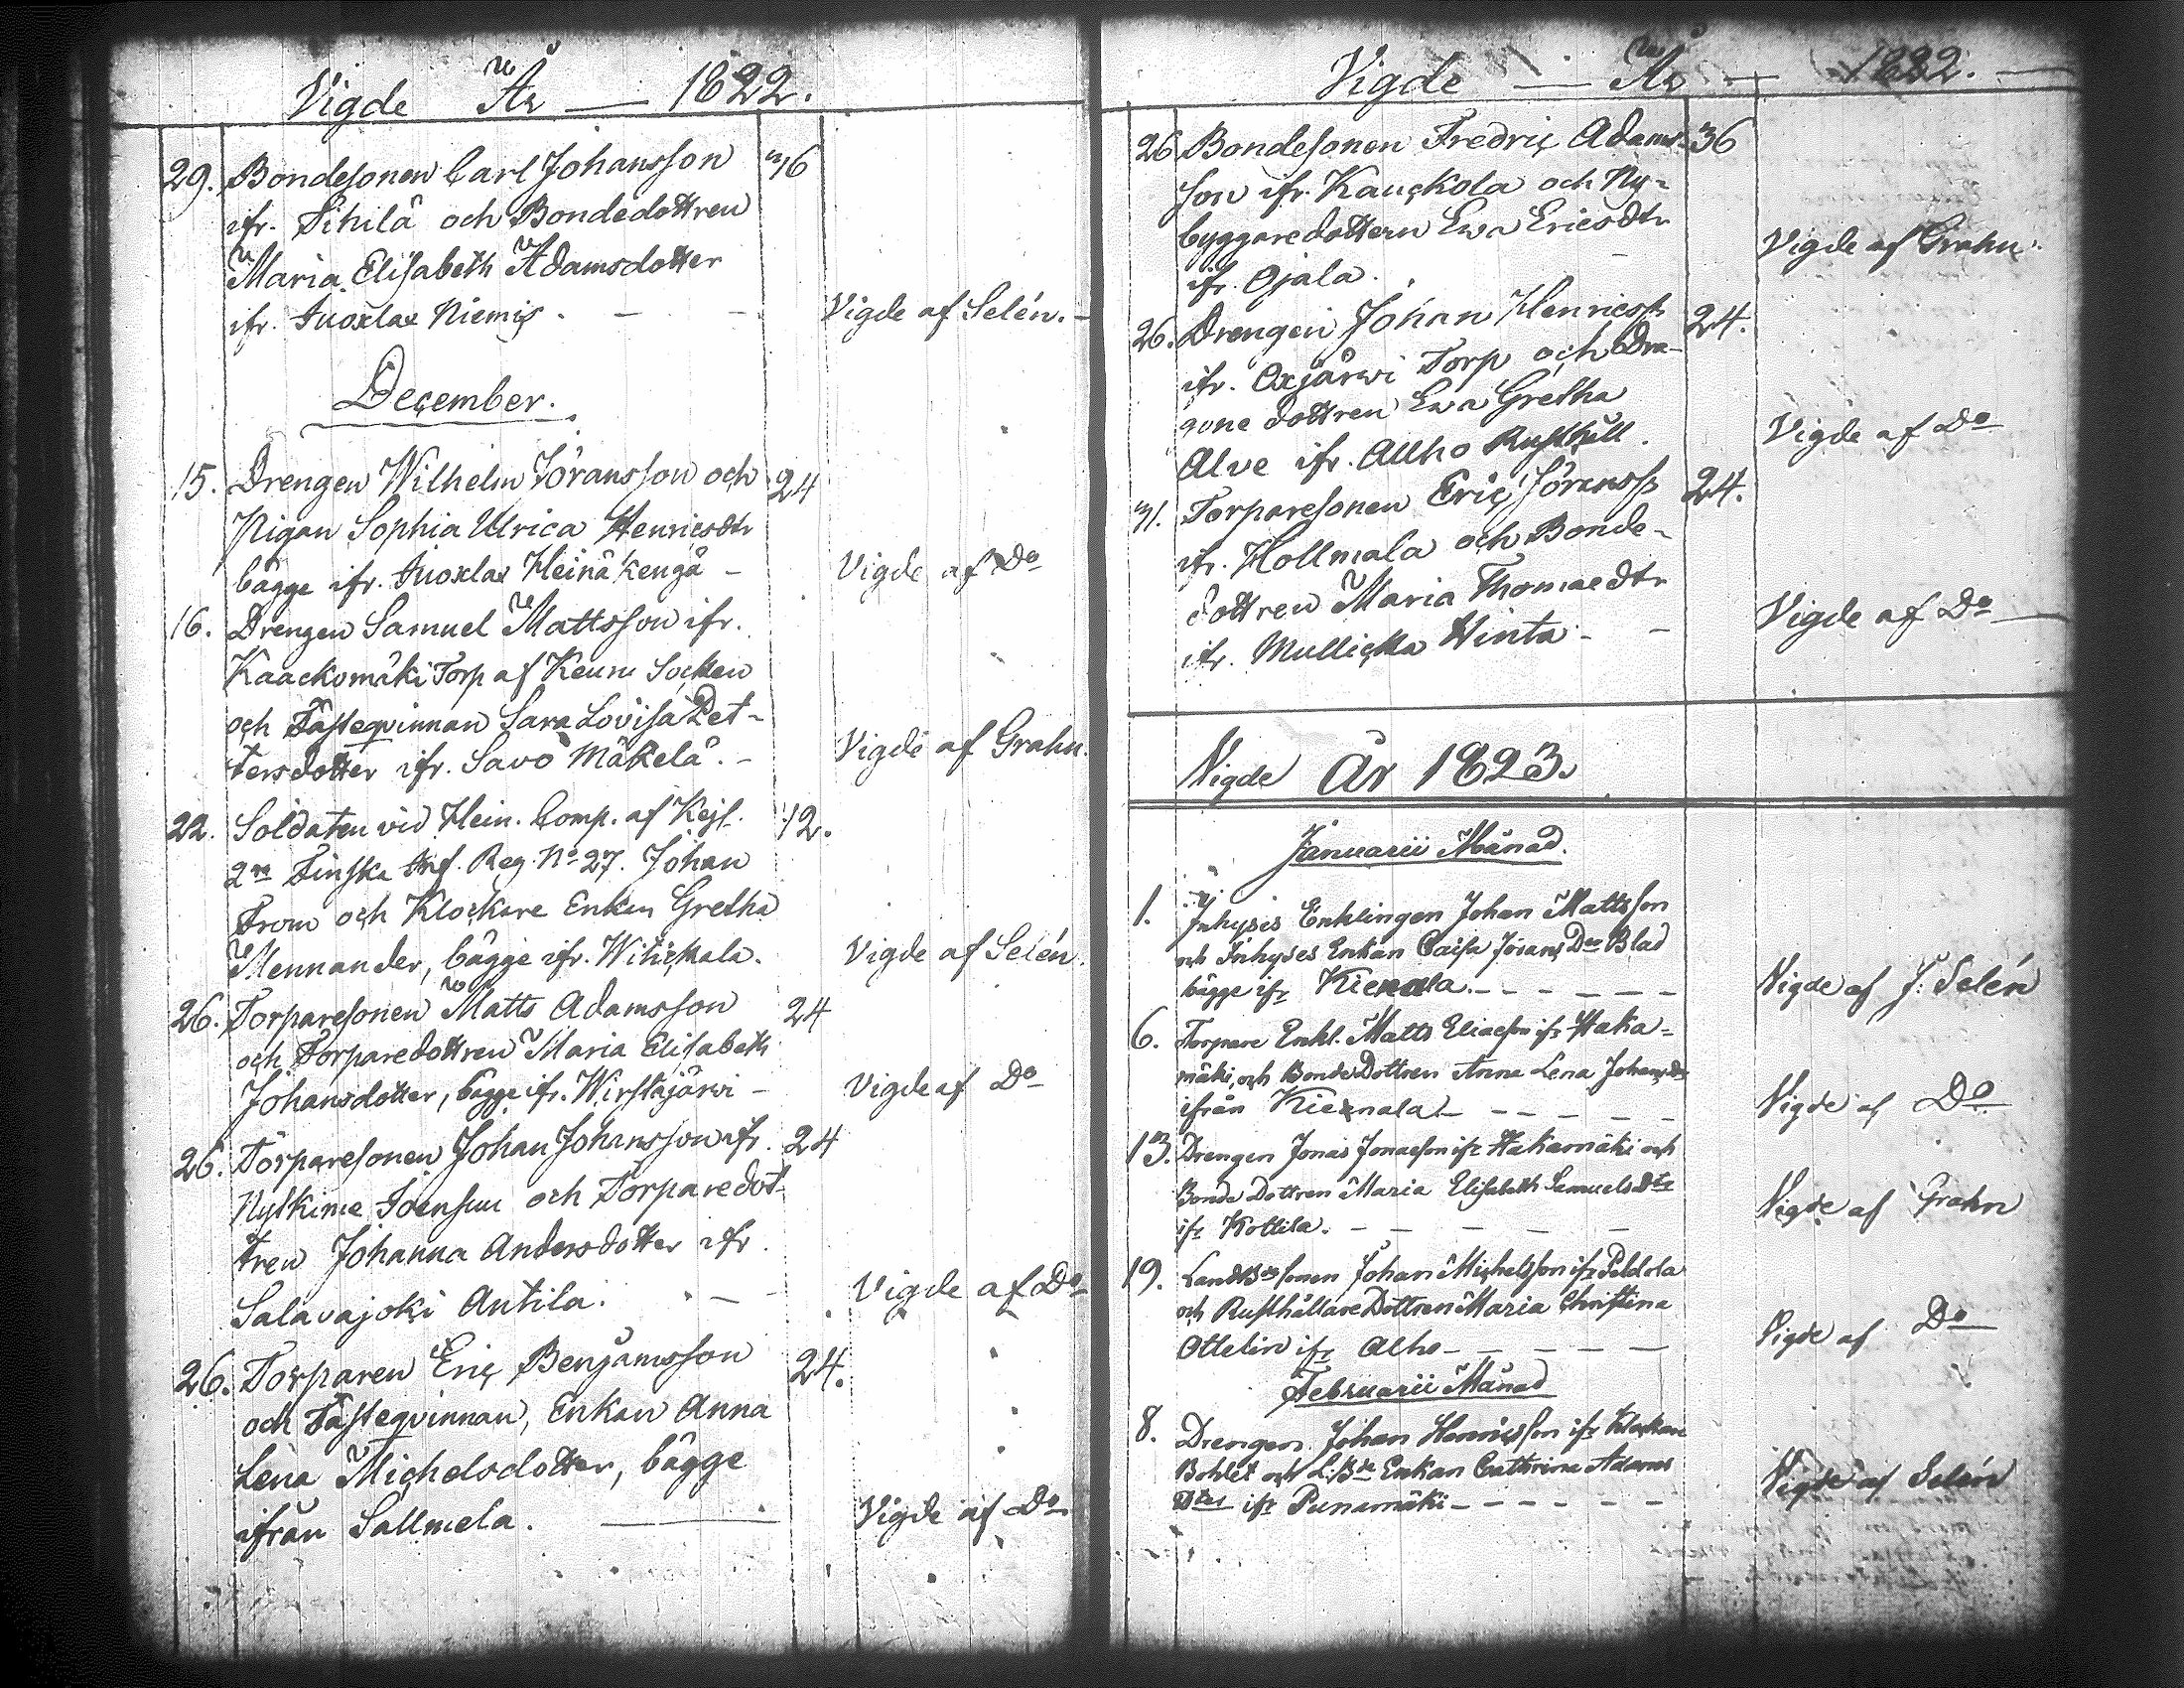 Vigde År — 1822.
29. Bondesonen Carl Johansson 36
ifr. Pihilä och Bondedottren
Maria Elisabeth Adamsdotter
ifr. Juoxlax Niemis. - - Vigde af Selén. -
December.
15. Drengen Wilhelm Jöransson och 24
Pigan Sophia Ulrica Henricsdtr
bägge ifr. Juoxlax Heinäkengä - Vigde af Do
16. Drengen Samuel Mattsson ifr.
Kaackomäki Torp af Keuru Socken
och Fästeqvinnan Sara Lovisa Pet-
tersdotter ifr. Savo Mäkelä. - Vigde af Grahn.
22. Soldaten vid Hein. Comp. af Kejs. 12.
2ra Finska Inf. Reg. No 27. Johan
From och Klockare Enkan Gretha
Mennander, bägge ifr. Wihickala. Vigde af Selén.
26. Torparesonen Matts Adamsson 24
och Torparedottren Maria Elisabeth
Johansdotter, bägge ifr. Wirstajärwi - Vigde af Do
26. Torparesonen Johan Johansson ifr. 24
Nylkime Joensuu och Torparedot-
tren Johanna Andersdotter ifr.
Salavajoki Antila. - Vigde af Do
26. Torparen Eric Benjamsson 24.
och Fästeqvinnan, Enkan Anna
Lena Michelsdotter, bägge
ifrån Sallmela. — Vigde af Do
Vigde — År — 1822. —
26 Bondesonen Fredric Adams- 36
son ifr. Kauckola och Ny-
byggaredottern Ewa Ericsdtr Vigde af Grahn.
ifr. Ojala.
26. Drengen Johan Henricss. 24.
ifr. Oxjärwi Torp och Dra-
gone dottren Ewa Gretha
Alve ifr. Allho Rusthåll. Vigde af Do
31. Torparesonen Eric Jöranss. 24.
ifr. Hollmala och Bonde-
dottren Maria Thomaedtr
ifr. Mullicka Hinta - - Vigde af Do —
Vigde År 1823.
Januarii Månad.
1. Inhyses Enklingen Johan Mattsson
och Inhyses Enkan Caisa Jörans Dr Blad
bägge ifr Kienala. - - - - - - Vigde af J: Selén
6. Torpare Enkl. Matts Eliaeson ifr Haka-
mäki, och Bonde Dottren Anna Lena Johans Dr
ifrån Kienala - - - - - - Vigde af Do
13. Drengen Jonas Jonaeson ifr Hakamäki och
Bonde Dottren Maria Elisabeth Samuels Dtr
ifr Kottila. - - - - - - Vigde af Grahn
19. Landbdesonen Johan Michelsson ifr Peldola
och Rusthållare Dottren Maria Christina
Ottelin ifr Alho - - - - - - Vigde af Do
Februarii Månad
8. Drengen Johan Henricsson ifr Klockare
Bohlet och L:Bde Enkan Cathrina Adams
Dter ifr Punamäki - - - - - - Vigde af Selén